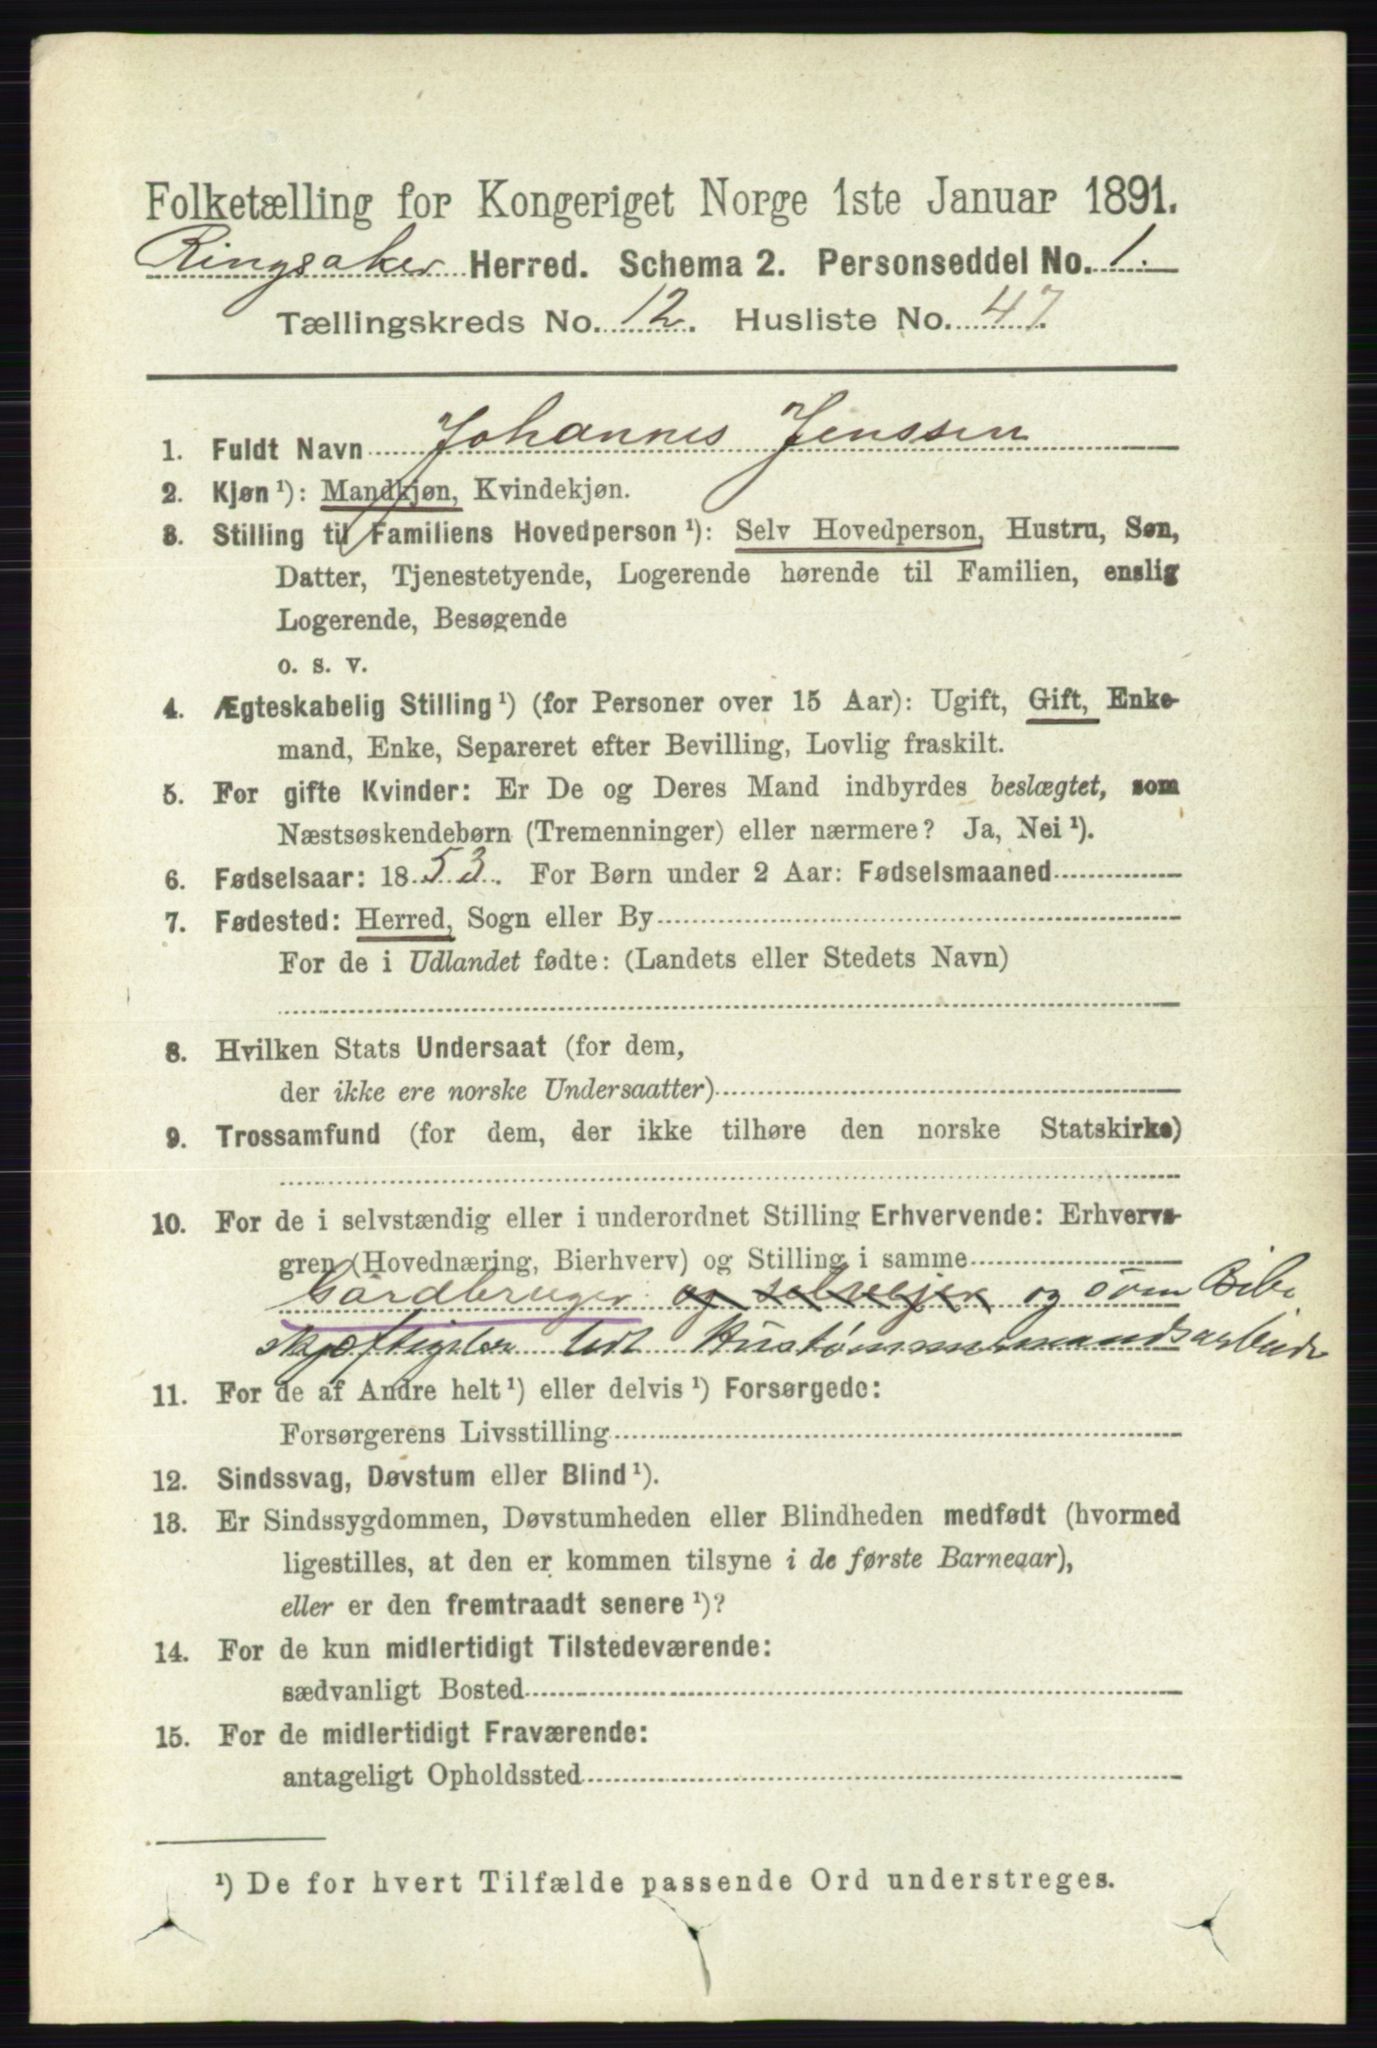 Folketælling for Kongeriget Norge 1ste Januar 1891.
Ringsaker Herred. Schema 2. Personseddel No. 1.
Tællingskreds No. 12. Husliste No. 47.
1. Fuldt Navn Johannes Jenssen
2. Kjøn ¹): Mandkjøn, Kvindekjøn.
3. Stilling til Familiens Hovedperson ¹): Selv Hovedperson, Hustru, Søn,
Datter, Tjenestetyende, Logerende hørende til Familien, enslig
Logerende, Besøgende
o. s. v.
4. Ægteskabelig Stilling ¹) (for Personer over 15 Aar): Ugift, Gift, Enke-
mand, Enke, Separeret efter Bevilling, Lovlig fraskilt.
5. For gifte Kvinder: Er De og Deres Mand indbyrdes beslægtet, som
Næstsøskendebørn (Tremenninger) eller nærmere? Ja, Nei ¹).
6. Fødselsaar: 1853. For Børn under 2 Aar: Fødselsmaaned
7. Fødested: Herred, Sogn eller By
For de i Udlandet fødte: (Landets eller Stedets Navn)
8. Hvilken Stats Undersaat (for dem,
der ikke ere norske Undersaatter)
9. Trossamfund (for dem, der ikke tilhøre den norske Statskirke)
10. For de i selvstændig eller i underordnet Stilling Erhvervende: Erhvervs-
gren (Hovednæring, Bierhverv) og Stilling i samme
Gårdbruger og selvejer og som Bibe
skjæftigelse ved Hustømmermandsarbeide
11. For de af Andre helt ¹) eller delvis ¹) Forsørgede:
Forsørgerens Livsstilling
12. Sindssvag, Døvstum eller Blind ¹).
13. Er Sindssygdommen, Døvstumheden eller Blindheden medfødt (hvormed
ligestilles, at den er kommen tilsyne i de første Barneaar),
eller er den fremtraadt senere ¹)?
14. For de kun midlertidigt Tilstedeværende:
sædvanligt Bosted
15. For de midlertidigt Fraværende:
antageligt Opholdssted
¹) De for hvert Tilfælde passende Ord understreges.